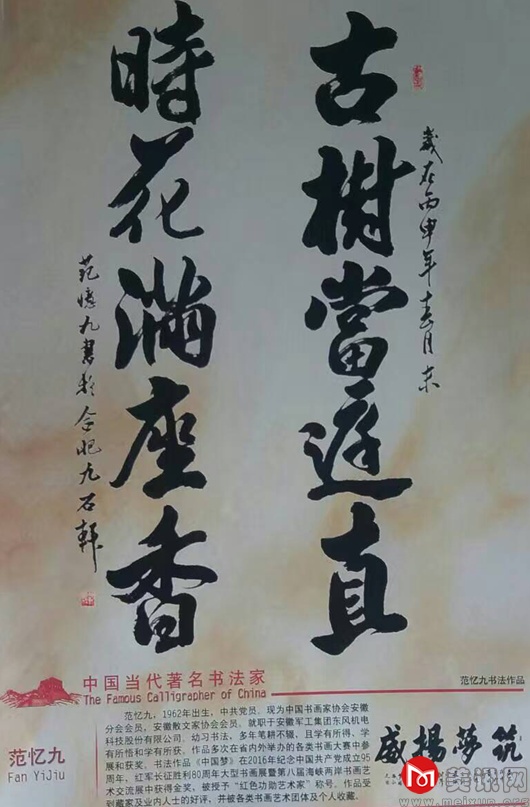 古樹當庭真
歲在丙申年春月末
時花满座香
范憶九書於合肥九石軒
中国当代著名书法家
The Famous Calligrapher of China
范忆九书法作品
范忆九
Fan YiJiu
范忆九，1962年出生，中共党员，现为中国书画家协会安徽
分会会员，安徽散文家协会会员。就职于安徽军工集团东风机电
科技股份有限公司。幼习书法、多年笔耕不辍，且学有所得、学
有所悟和学有所获。作品多次在省内外举办的各类书画大赛中参
展和获奖。书法作品《中国梦》在2016年纪念中国共产党成立95
周年、红军长征胜利80周年大型书画展暨第八届海峡两岸书画艺
术交流展中获得金奖。被授予“红色功勋艺术家”称号。作品受
到藏家及业内人士的好评，并被各类书画艺术团体及个人收藏。
威揚夢筑
美讯网